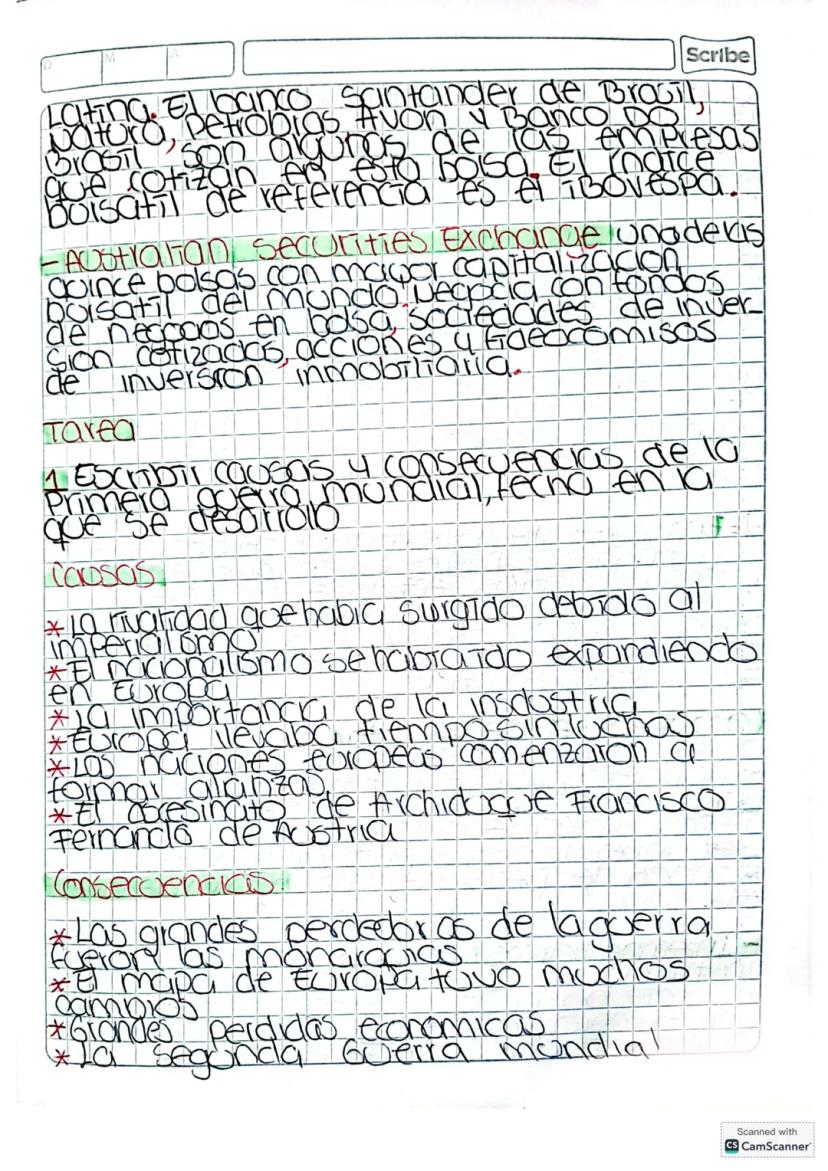 D
M
A
Scribe
Latina. El banco Santander de Brasil,
Natura, petrobras, Avon y Banco DO
Brasil, son algunas de las empresas
que cotizan en esta bolsa. El indice
bolsatil de referencia es el iBovespa.
- Australian Securities Exchange una de las
quince bolsas con mayor capitalización
bursatil del mundo. Negocia con fondos
de negocios en bolsa, sociedades de inver-
sion cotizadas, acciones y fideocomisos
de inversion inmobiliaria.
Tarea
1 Escribir causas y consecuencias de la
Primera guerra mundial, fecha en la
que se desarrolo
Causas
* La rivalidad que habia surgido debido al
imperialismo
* El nacionalismo se habia ido expandiendo
en Europa
* La importancia de la insdustria
* Europa llevaba tiempo sin luchas
* Las naciones europeas comenzaron a
formar alianzas
* El acesinato de Archiduque Francisco
Fernando de Austria
Consecuencias.
* Las grandes perdedoras de la guerra
fueron las monarquias
* El mapa de Europa tuvo muchos
cambios
* Grandes perdidas economicas
* La segunda Guerra mundial
Scanned with
CS CamScanner